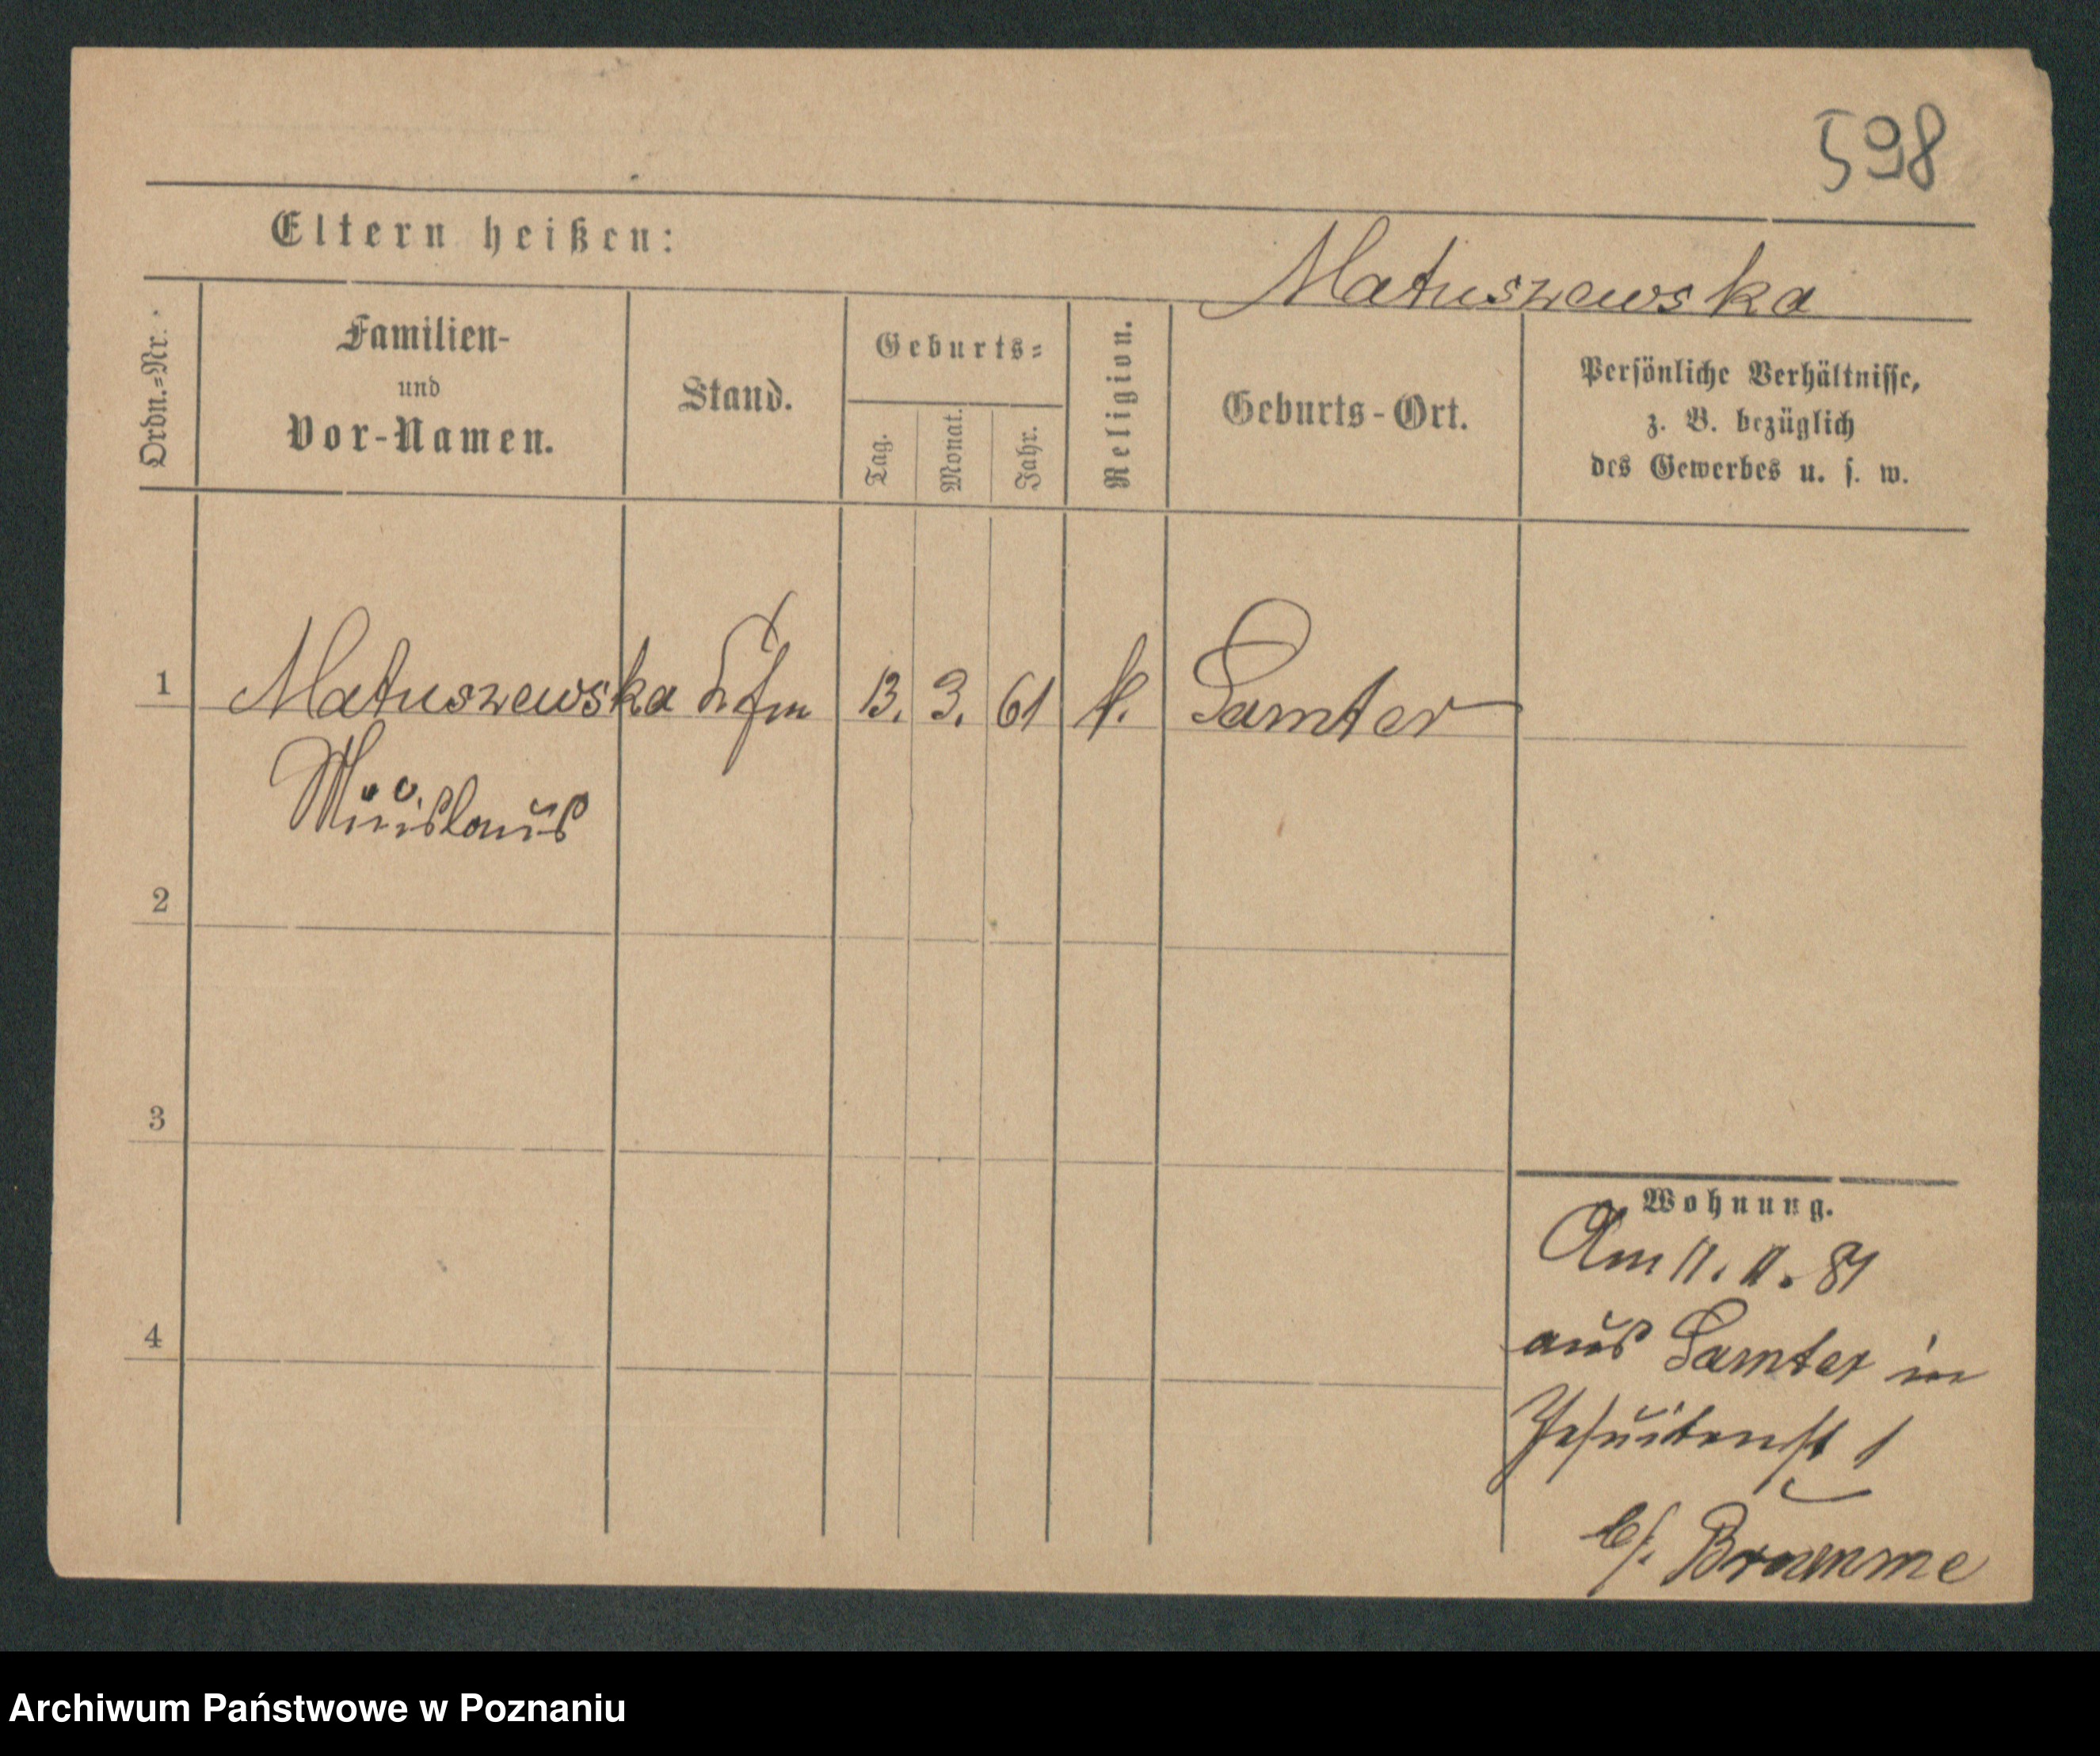 598
Eltern heißen:
Matuszewska
Ordn.=Nr.
Familien-
und
Vor-Namen.
Stand.
Geburts=
Tag.
Monat.
Jahr.
Religion.
Geburts-Ort.
Persönliche Verhältnisse,
z. B. bezüglich
des Gewerbes u. s. w.
1
Matuszewska
13. 3. 61 k. Samter
2
3
4
Wohnung.
Am 11. II. 81
aus Samter in
Jesuitenst 1
b/. Brumme
Archiwum Państwowe w Poznaniu